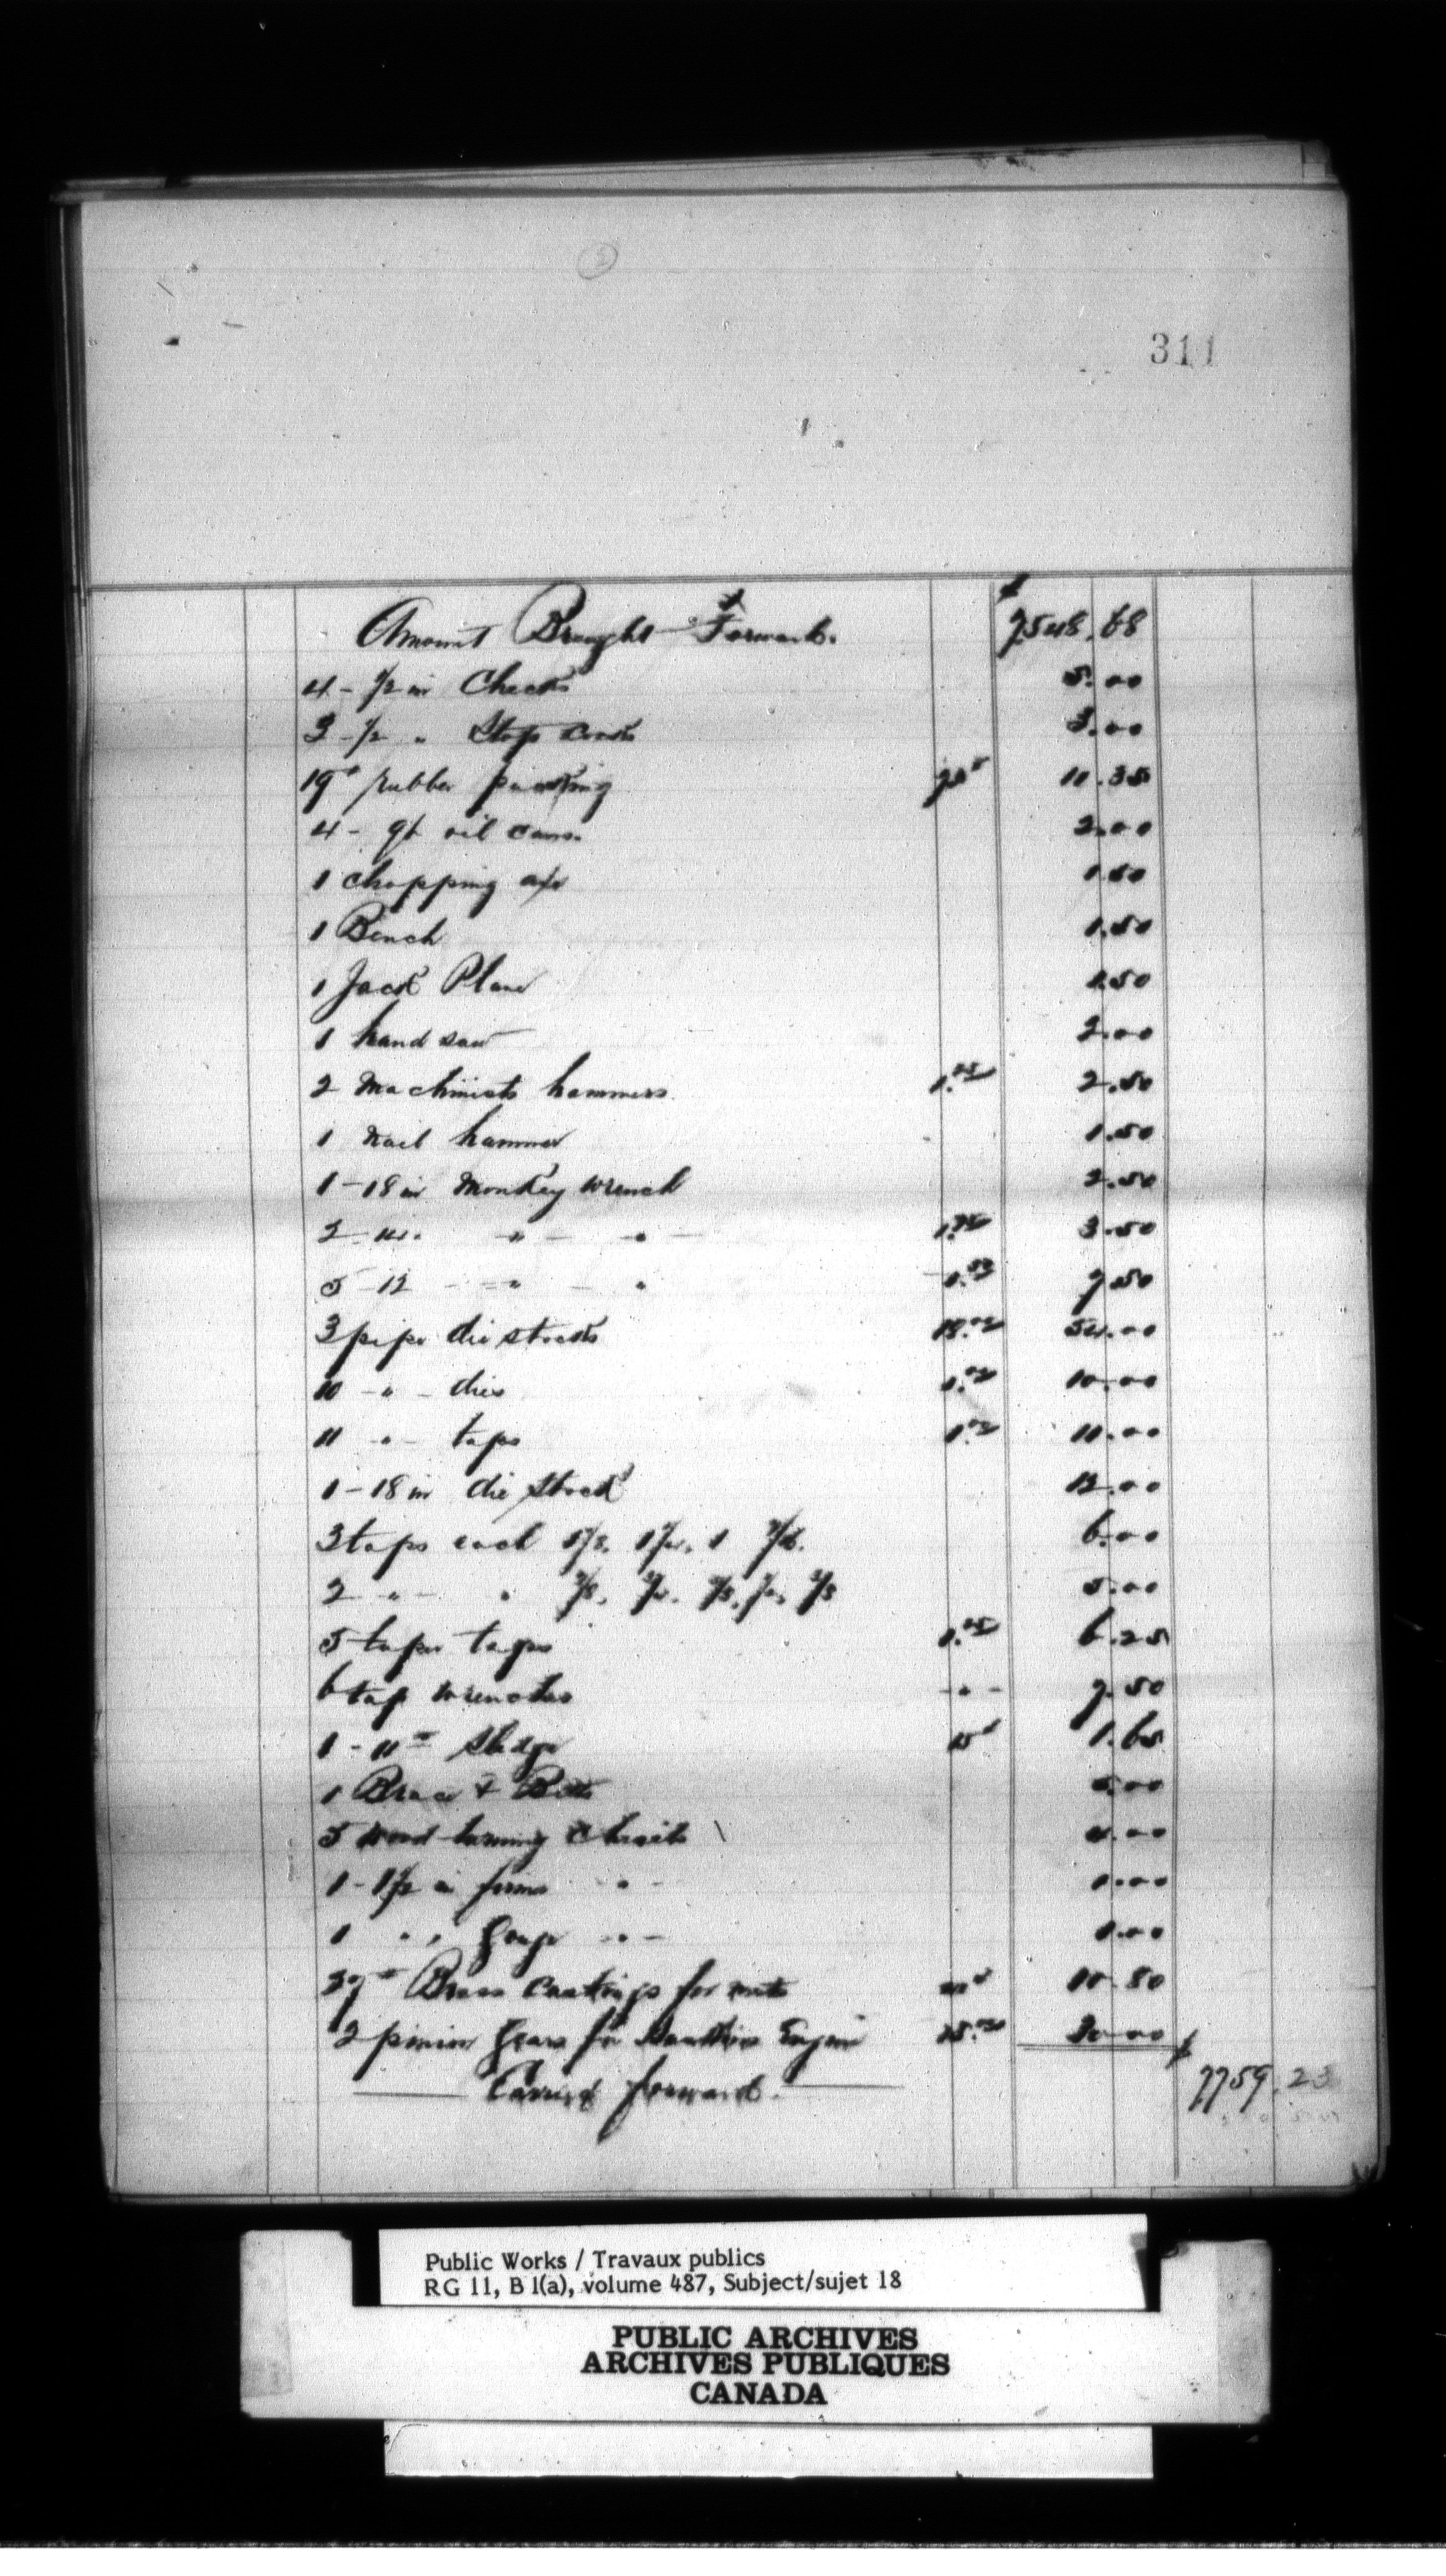 2
311
Amount Brought Forward. $ 7548.68
4 - 1/2 in Checks 5.00
3 - 1/2 " Stop Cocks 3.00
19# rubber packing 10.35
4 - qt oil cans. 2.00
1 Chopping axe 1.50
1 Bench 1.50
1 Jack Plane 1.50
1 hand saw 2.00
2 Machinists hammers 1.25 2.50
1 Nail hammer 1.50
1 - 18 in Monkey Wrench 2.50
2 - 14. " " 1.75 3.50
5 - 12 " " 1.50 7.50
3 pipe die stocks 18.00 54.00
10 " dies 1.00 10.00
11 " taps 1.00 11.00
1 - 18 in die stock 12.00
3 taps each 6.00
2 " " 5.00
5 taper taps 1.25 6.25
6 tap wrenches " 7.50
1 - 11# Sledge 15 1.65
1 Brace & Bitts 5.00
5 wood turning Chisels 4.00
1 - 1 1/2 in firmer " 1.00
1 " " Gouge " 1.00
27# Brass Castings for nuts 40 10.80
2 pinion Gears for Engine 
Carried forward. $ 7759.23
Public Works / Travaux publics
RG 11, B 1(a), volume 487, Subject/sujet 18
PUBLIC ARCHIVES
ARCHIVES PUBLIQUES
CANADA